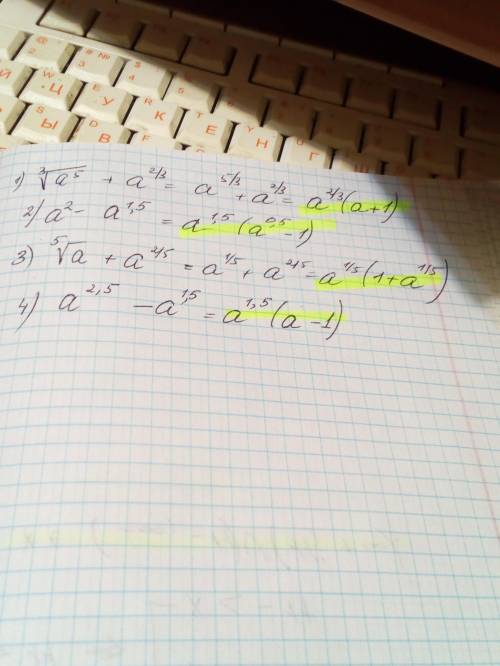 @ # №
2 3 $
4
Й W Ц E У R К T Е Y Н Г
Ы D В
1) ∛a⁵ + a^2/3 = a^5/3 + a^2/3 = a^2/3(a+1)
2) a² - a^1,5 = a^1,5(a^0,5 - 1)
3) ⁵√a + a^2/5 = a^1/5 + a^2/5 = a^1/5(1 + a^1/5)
4) a^2,5 - a^1,5 = a^1,5(a - 1)